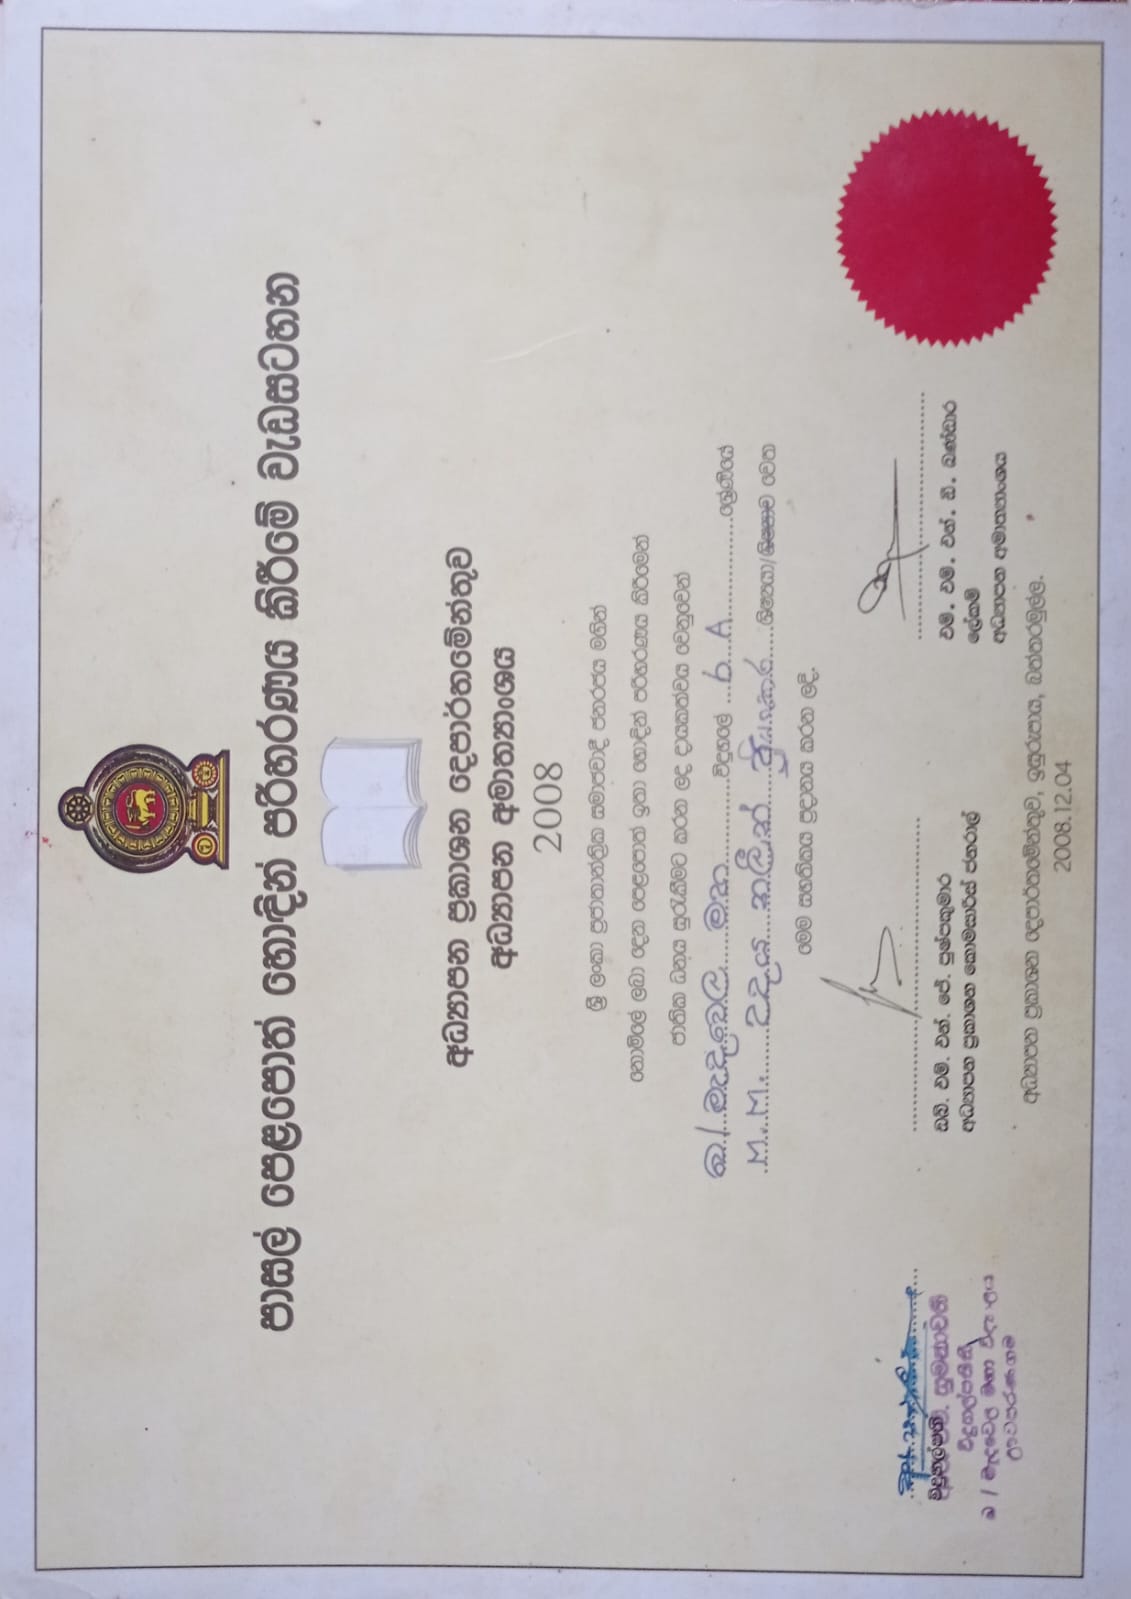 පාසල් පෙළපොත් හොඳින් පරිහරණය කිරීමේ වැඩසටහන
අධ්‍යාපන ප්‍රකාශන දෙපාර්තමේන්තුව
අධ්‍යාපන අමාත්‍යාංශය
2008
ශ්‍රී ලංකා ප්‍රජාතාන්ත්‍රික සමාජවාදී ජනරජය මගින්
නොමිලේ ලබා දෙන පෙළපොත් ඉතා හොඳින් පරිහරණය කිරීමෙන්
ජාතික ධනය සුරැකීමට කරන ලද දායකත්වය වෙනුවෙන්
බ/මැදවෙල මහා විදුහලේ 6 A ශ්‍රේණියේ
M.M. උදය නලීන් ප්‍රියංකර ශිෂ්‍යයා/ශිෂ්‍යාව වෙත
මෙම සහතිකය ප්‍රදානය කරන ලදි.
විදුහල්පති
සුමනාවතී
විදුහල්පතිනී
බ / මැදවෙල මහා විද්‍යාලය
ඌවපරණගම
ඩබ්. එම්. එන්. ජේ. පුෂ්පකුමාර
අධ්‍යාපන ප්‍රකාශන කොමසාරිස් ජනරාල්
එම්. එම්. එන්. ඩී. බණ්ඩාර
ලේකම්
අධ්‍යාපන අමාත්‍යාංශය
අධ්‍යාපන ප්‍රකාශන දෙපාර්තමේන්තුව, ඉසුරුපාය, බත්තරමුල්ල.
2008.12.04